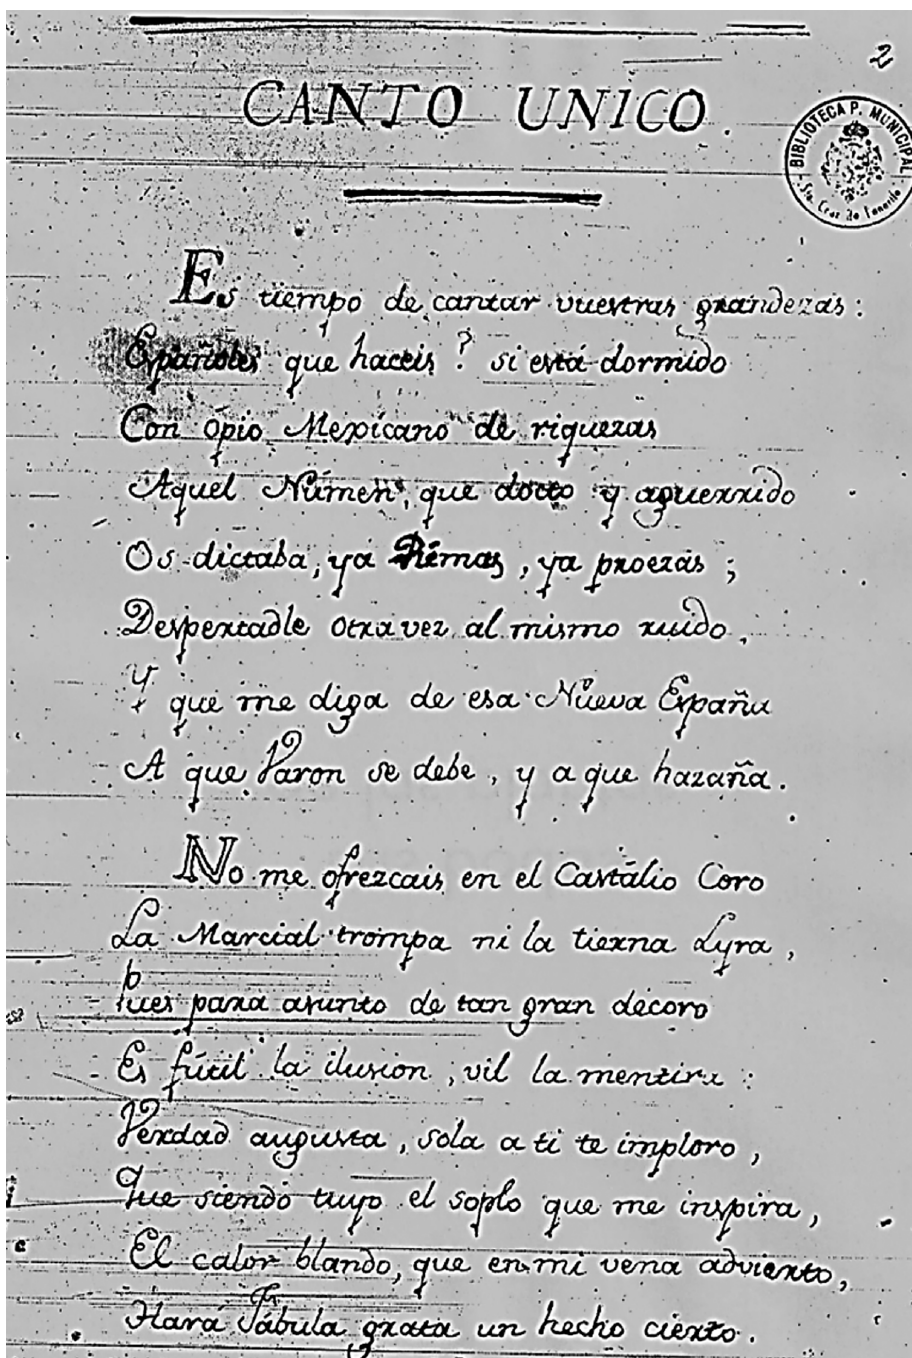 2
CANTO UNICO.
BIBLIOTECA P. MUNICIPAL
Sta. Cruz de Tenerife
Es tiempo de cantar vuestras grandezas:
Españoles que haceis? si está dormido
Con ópio Mexicano de riquezas
Aquel Númen, que docto y aguerrido
Os dictaba, ya Rimas, ya proezas;
Despertadle otra vez al mismo ruido,
Y que me diga de esa Nueva España
A que Varon se debe, y a que hazaña.
No me ofrezcais en el Castálio Coro
La Marcial trompa ni la tierna Lyra,
Pues para asunto de tan gran decoro
Es fútil la ilusion, vil la mentira:
Verdad augusta, sola a ti te imploro,
Que siendo tuyo el soplo que me inspira,
El calor blando, que en mi vena advierto,
Hará Fábula grata un hecho cierto.